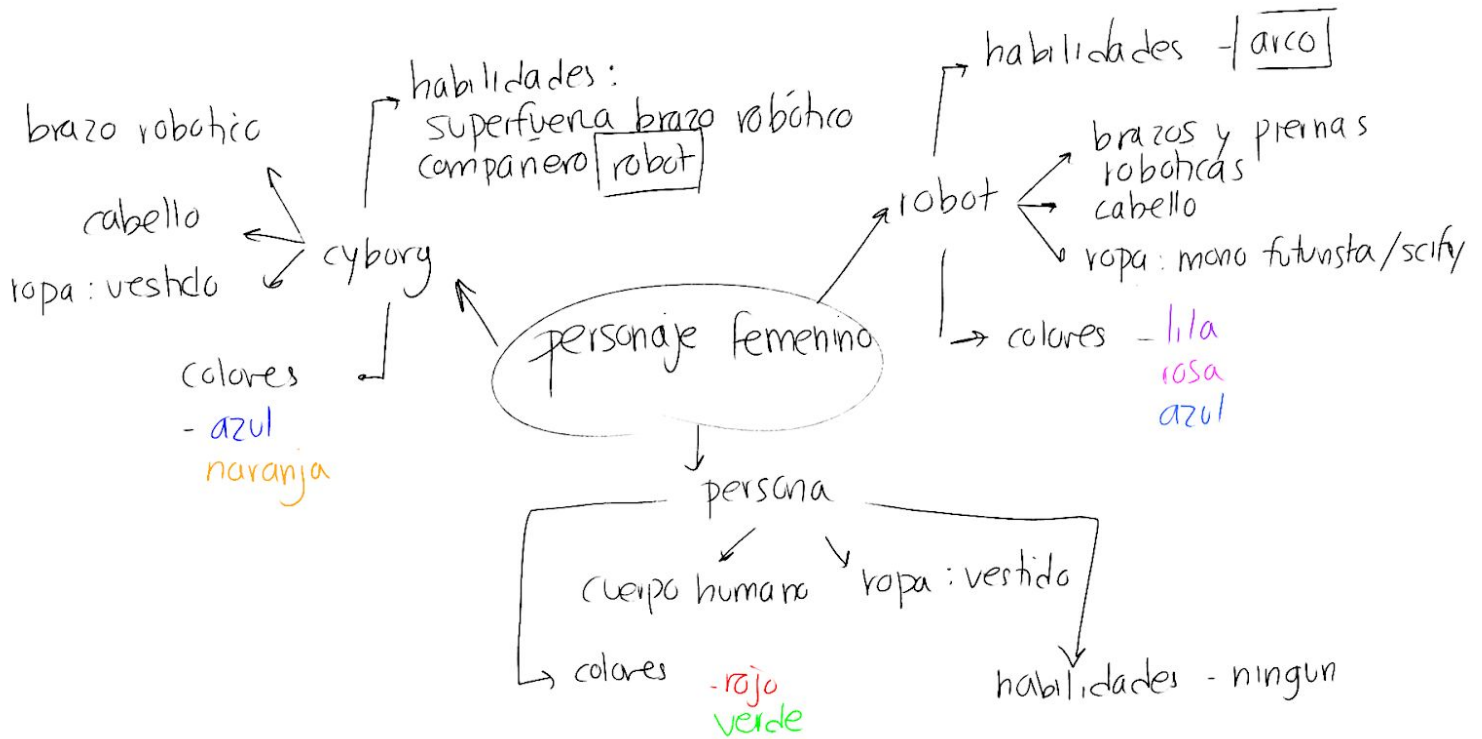 personaje femenino
cyborg
habilidades:
superfuerza brazo robótico
compañero robot
brazo robotic
cabello
ropa: vestido
colores
- azul
naranja
robot
habilidades - arco
brazos y piernas
roboticas
cabello
ropa: mono futurista/scify
colores - lila
rosa
azul
persona
cuerpo humano
ropa: vestido
colores - rojo
verde
habilidades - ningun